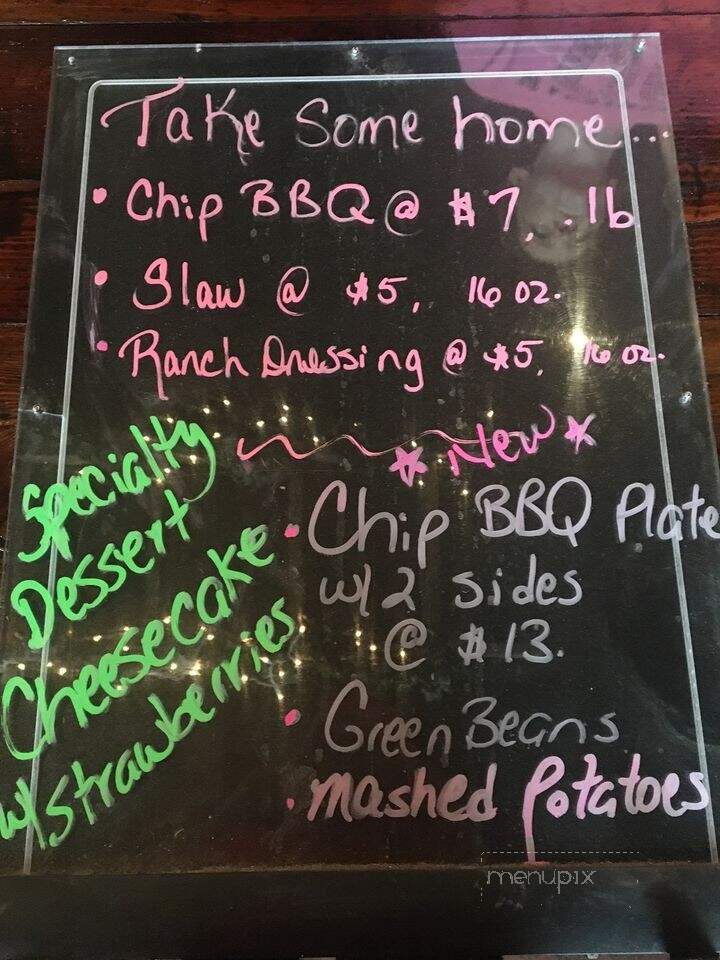 Take Some home...
• Chip BBQ @ $7, .lb
• Slaw @ $5, 16 oz.
• Ranch Dressing @ $5, 16 oz.
New
• Chip BBQ Plate
w/ 2 sides
@ $13.
• Green Beans
• mashed Potatoes
Specialty
Dessert
Cheesecake
w/ Strawberries
menupix